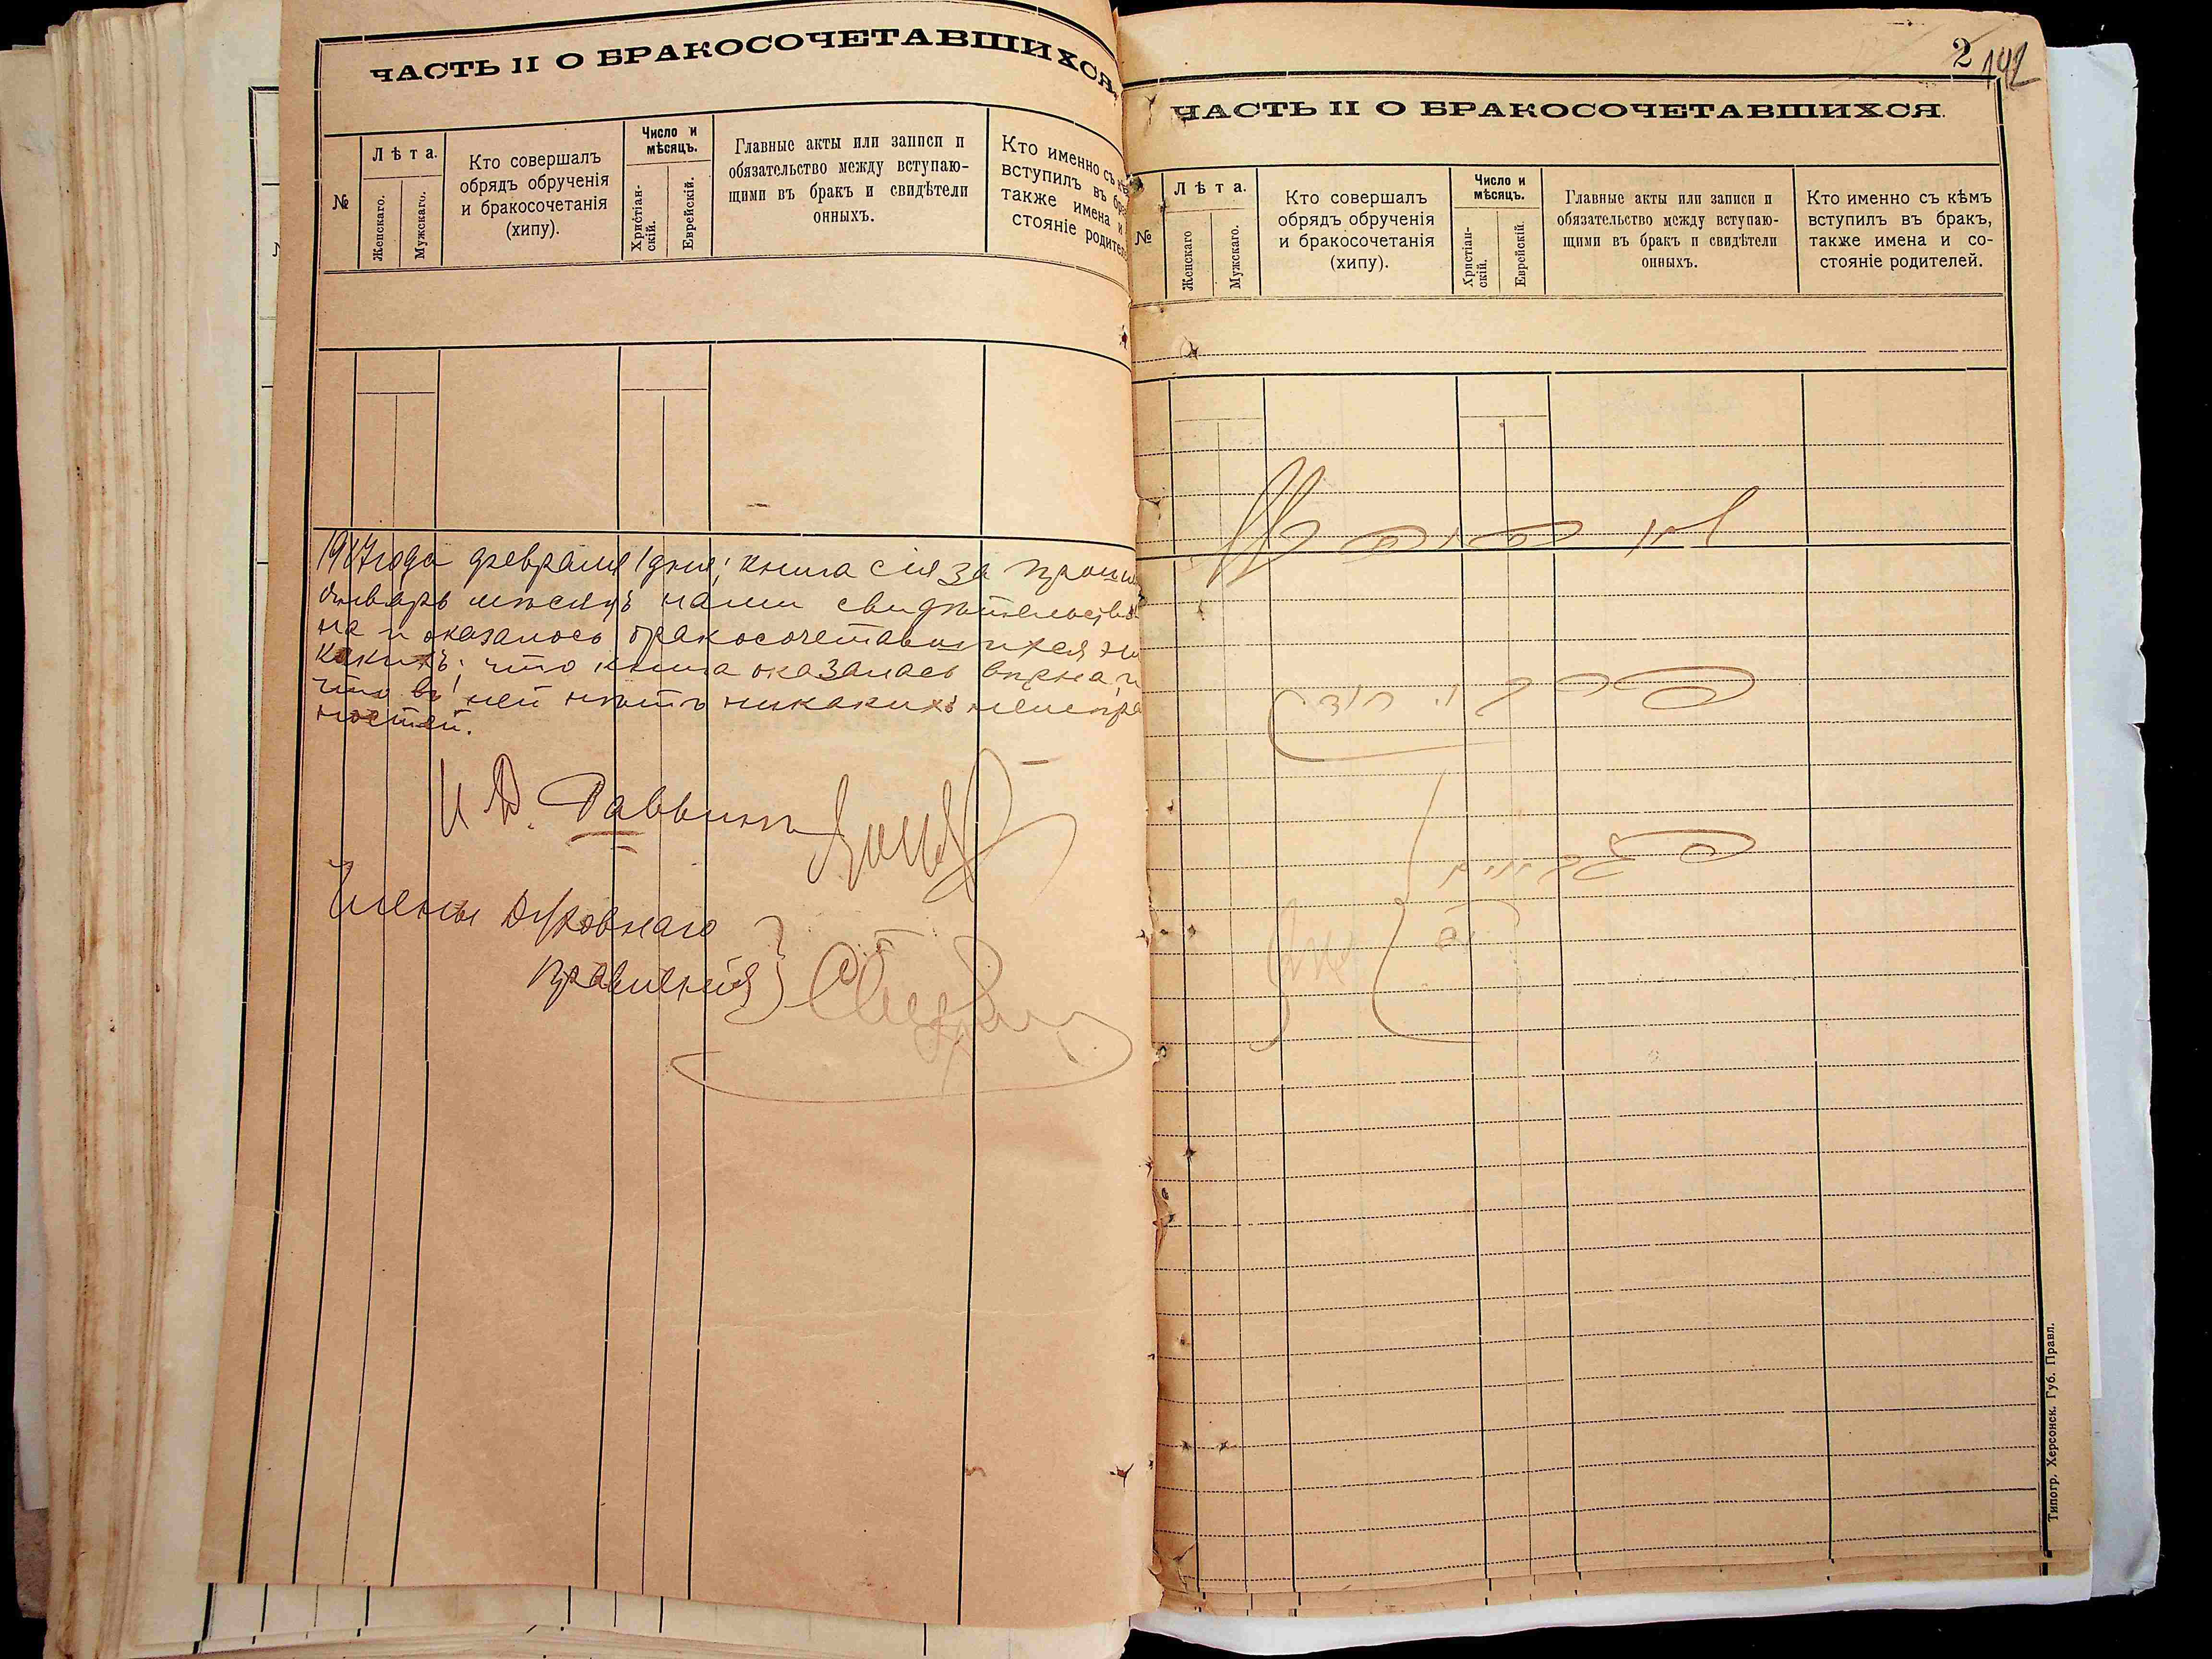 ЧАСТЬ II О БРАКОСОЧЕТАВШИХСЯ.
№
Лѣта.
Женскаго.
Мужскаго.
Кто совершалъ
обрядъ обрученія
и бракосочетанія
(хипу).
Число и
мѣсяцъ.
Христіан-
скій.
Еврейскій.
Главные акты или записи и
обязательство между вступаю-
щими въ бракъ и свидѣтели
онныхъ.
Кто именно съ
вступилъ въ
также имена и
стояніе
года февраля 1 дня; книга сія за
Январь мѣсяцъ нами
на и оказалось бракосочетавшихся ни
какихъ; что книга оказалась вѣрна, и
что въ ней нѣтъ никакихъ
ностей.
И. Д. Раввина
Члены Духовнаго
Правленія
2
142
ЧАСТЬ II О БРАКОСОЧЕТАВШИХСЯ.
№
Лѣта.
Женскаго
Мужскаго.
Кто совершалъ
обрядъ обрученія
и бракосочетанія
(хипу).
Число и
мѣсяцъ.
Христіан-
скій.
Еврейскій.
Главные акты или записи и
обязательство между вступаю-
щими въ бракъ и свидѣтели
онныхъ.
Кто именно съ кѣмъ
вступилъ въ бракъ,
также имена и со-
стояніе родителей.
Типогр. Херсонск. Губ. Правл.